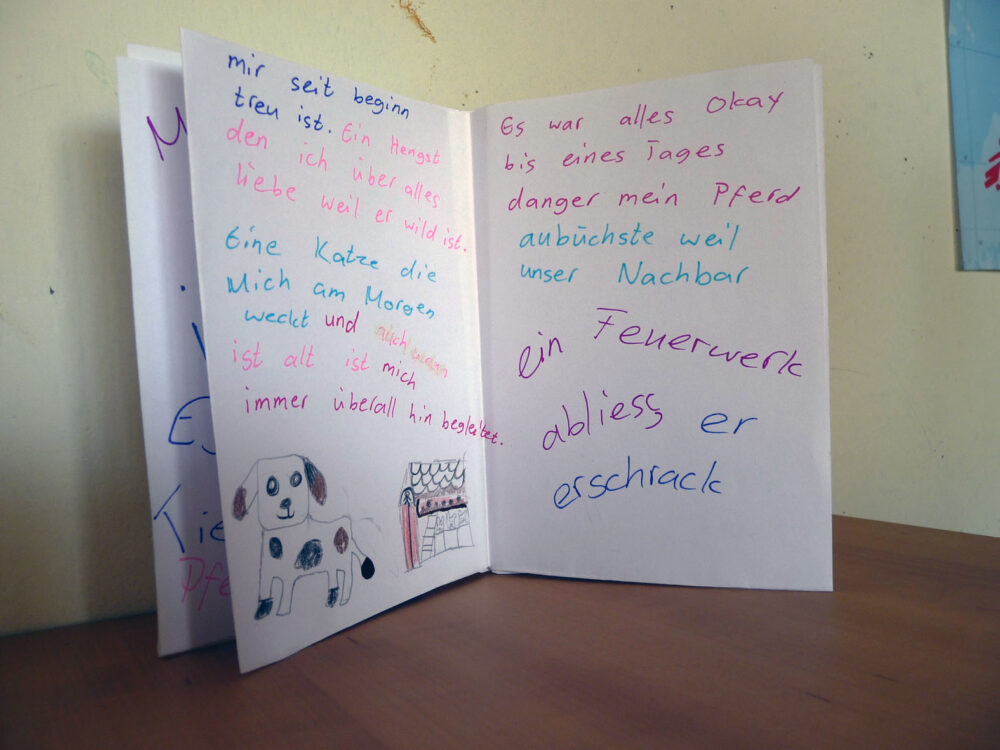 mir seit beginn
treu ist. Ein Hengst
den ich über alles
liebe weil er wild ist.
Eine Katze die
Mich am Morgen
weckt und auch wenn
ist alt ist mich
immer überall hin begleitet.
Es war alles Okay
bis eines Tages
danger mein Pferd
aubüchste weil
unser Nachbar
ein Feuerwerk
abliess er
erschrack